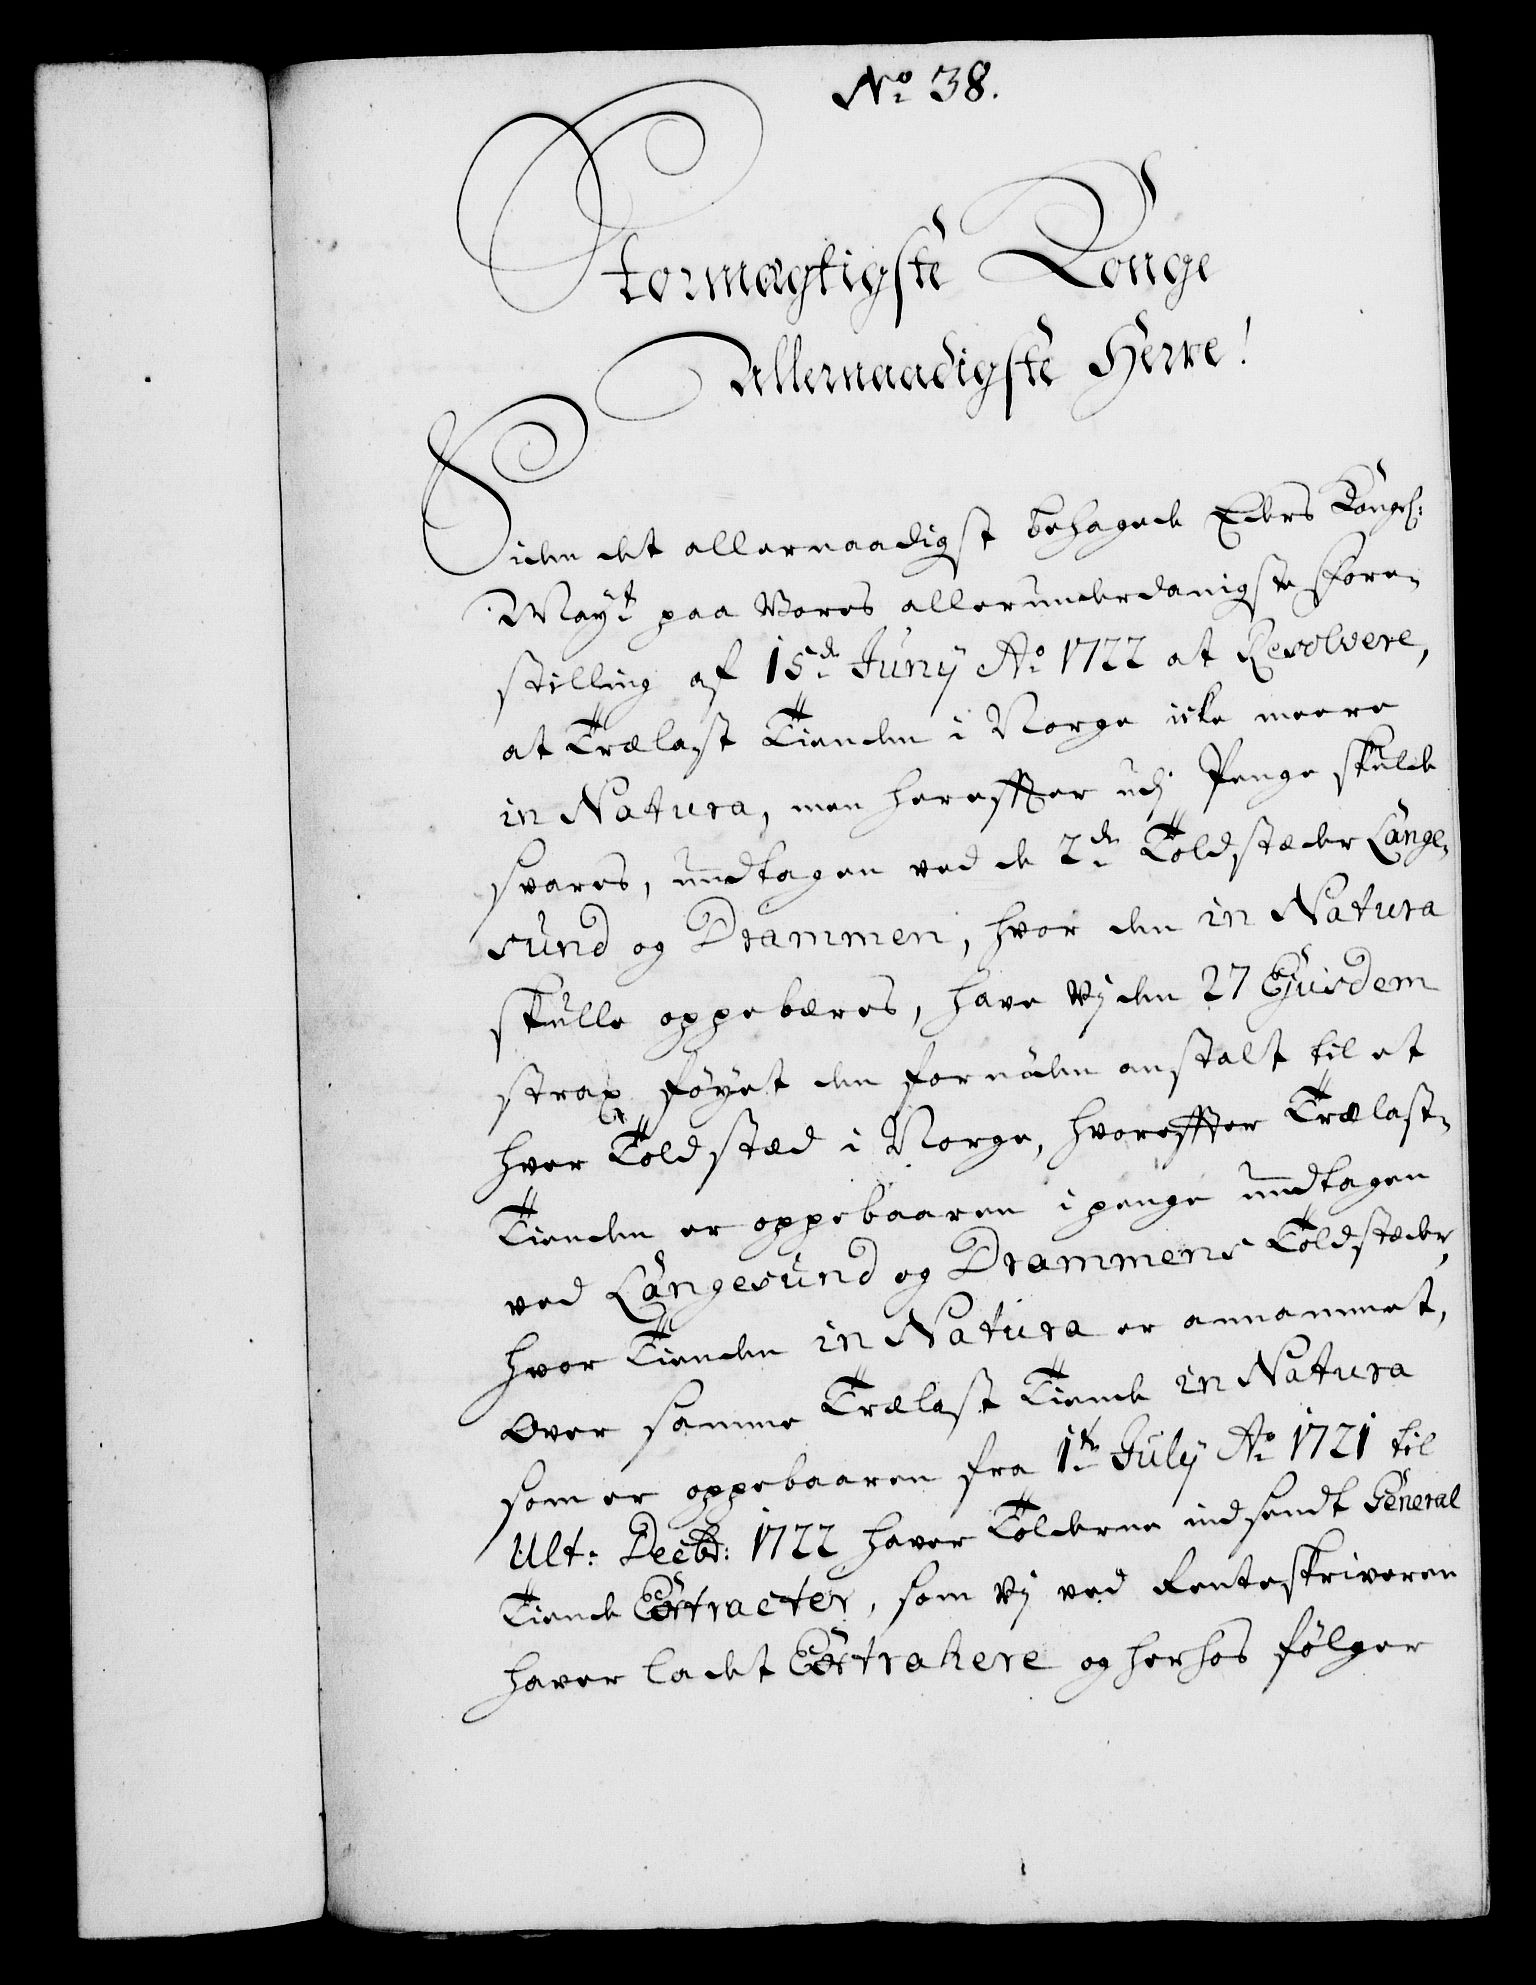 No 38.
Stormægtigste Konge
Allernaadigste Herre!
Siden det allernaadigst behagede Eders Kongel:
Mayt paa Vores allerunderdanigste Fore-
stilling af 15de Junij Ao 1722 at Resolvere,
at Trælast Tienden i Norge icke meere
in Natura, men hereffter udj Penge skulde
svares, undtagen ved de 2de Toldstæder Lange-
sund og Drammen, hvor den in Natura
skulle oppebæres, have Vj den 27 Ejusdem
strax föyet den fornöden anstalt til et
hver Toldstæd i Norge, hvoreffter Trælast-
Tienden er oppebaaren i penge undtagen
ved Langesund og Drammens Toldstæder,
hvor Tienden in Natura er annammet,
Over samme Trælast Tiende in Natura
som er oppebaaren fra 1te July Ao 1721 til
Ult: Decbr: 1722 haver Tolderne indsendt General
Tiende Extracter, som Vj ved Renteskriveren
haver ladet Extrahere og herhos fölger